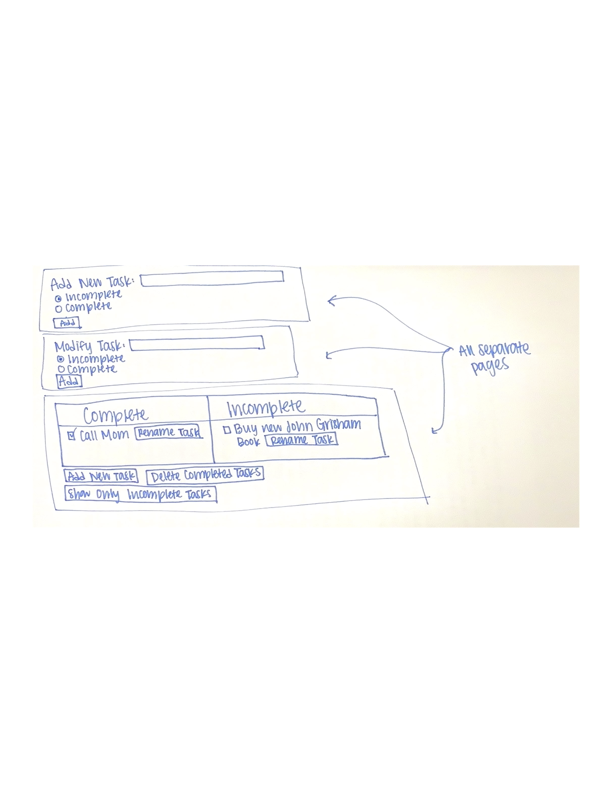 Add New Task:
Incomplete
Complete
Add
Modify Task:
Incomplete
Complete
Add
All separate
pages
Complete
Incomplete
Call Mom Rename Task
Buy new John Grisham
Book Rename Task
Add New Task Delete Completed Tasks
Show Only Incomplete Tasks